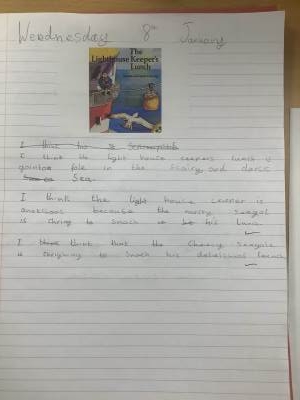 Wednesday 8th January
The
Lighthouse Keeper's
Lunch
I think his is
I think the light house keepers lunch is
going to fale in the scary and darck
Sea
I think the light house keeper is
because the seegol
is trying to snach his lunch
I think that the Cheecy Seegols
is to snach his delicious lunch